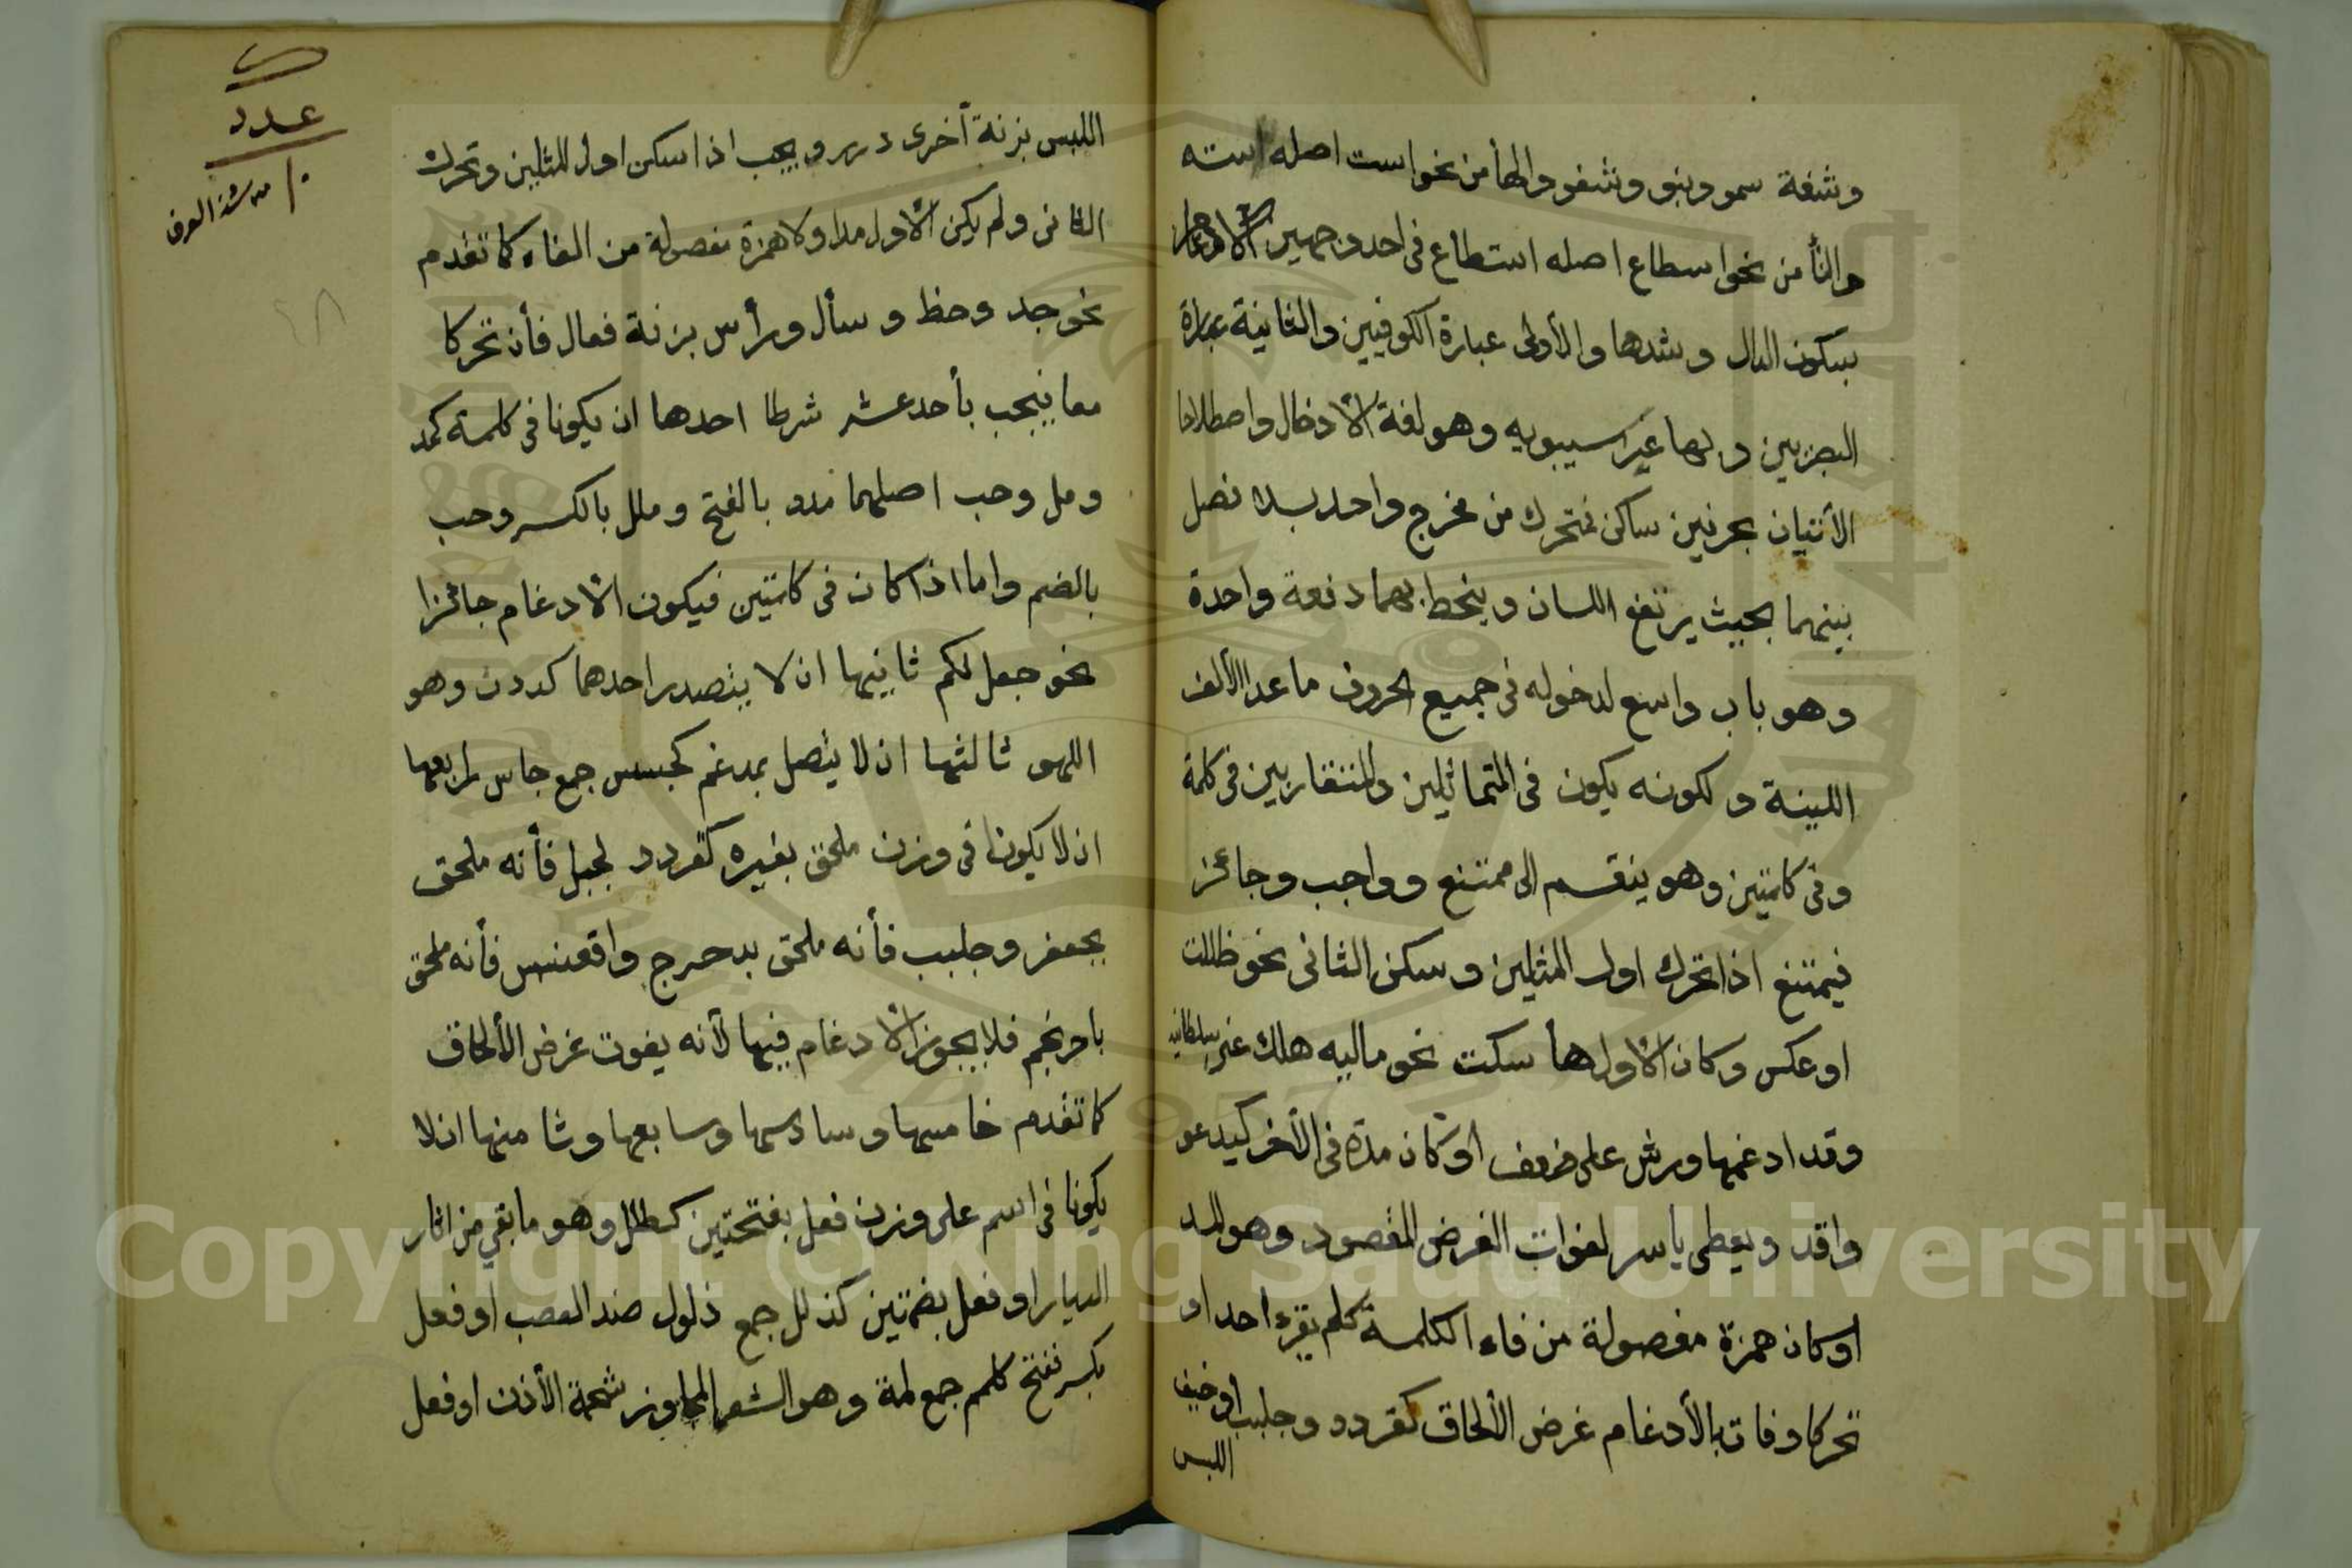 وشفة سمو وبنو وشفو والهأ من نحو است اصله استه
والتأ من نحو اسطاع اصله استطاع فى احد وجهين الادغام
بسكون الدال وشدها والأولى عبارة الكوفيين والثانية عبارة
البصريين ومنها غير سيبويه وهو لغة الادخال واصطلاحا
الأتيان بحرفين ساكن فمتحرك من مخرج واحد بلا فصل
بينهما بحيث يرتفع اللسان وينحط بهما دفعة واحدة
وهو باب واسع لدخوله فى جميع الحروف ما عدا الألف
اللينة ولكونه يكون فى المتماثلين والمتقاربين فى كلمة
وفى كلمتين وهو ينقسم الى ممتنع وواجب وجائز
فيمتنع اذا تحرك اول المثلين وسكن الثانى نحو ظللت
او عكس وكان الاول هأ سكت نحو ماليه هلك عنى سلطانيه
وقد ادغمها ورش على ضعف او كان مدة فى الأخر كيدعو
واقد ويعطى ياسر لفوات الغرض المقصود وهو المد
او كان همزة مفصولة من فاء الكلمة كلم يقرء احد او
تحركا وفات بالأدغام غرض الألحاق كقردد وجلبب او خيف
اللبس
اللبس بزنة أخرى درر ويجب اذا سكن اول المثلين وتحرك
الثانى ولم يكن الاول مدا ولا همزة مفصولة من الفاء كما تقدم
نحو جد وحظ وسأل ورأس بزنة فعال فأن تحركا
معا فيجب بأحد عشر شرطا احدها ان يكونا فى كلمة كمد
ومل وحب اصلهما مدد بالفتح وملل بالكسر وحبب
بالضم واما اذا كان فى كلمتين فيكون الادغام جائزا
نحو جعل لكم ثانيها ان لا يتصدر احدهما كددن وهو
اللهو ثالثها ان لا يتصل بمدغم كجسس جمع جاس رابعها
ان لا يكونا فى وزن ملحق بغيره كقردد لجبل فأنه ملحق
بجعفر وجلبب فأنه ملحق بدحرج واقعنسس فأنه ملحق
باحرنجم فلا يجوز الادغام فيها لأنه يفوت غرض الألحاق
كما تقدم خامسها وسادسها وسابعها وثامنها ان لا
يكونا فى اسم على وزن فعل بفتحتين كطلل وهو ما بقي من اثار
الديار او فعل بضمتين كذلل جمع ذلول ضد الصعب او فعل
بكسر ففتح كلمم جمع لمة وهو الشعر المجاوز شحمة الأذن او فعل
عدد
من شذ العرف
Copyright © King Saud University